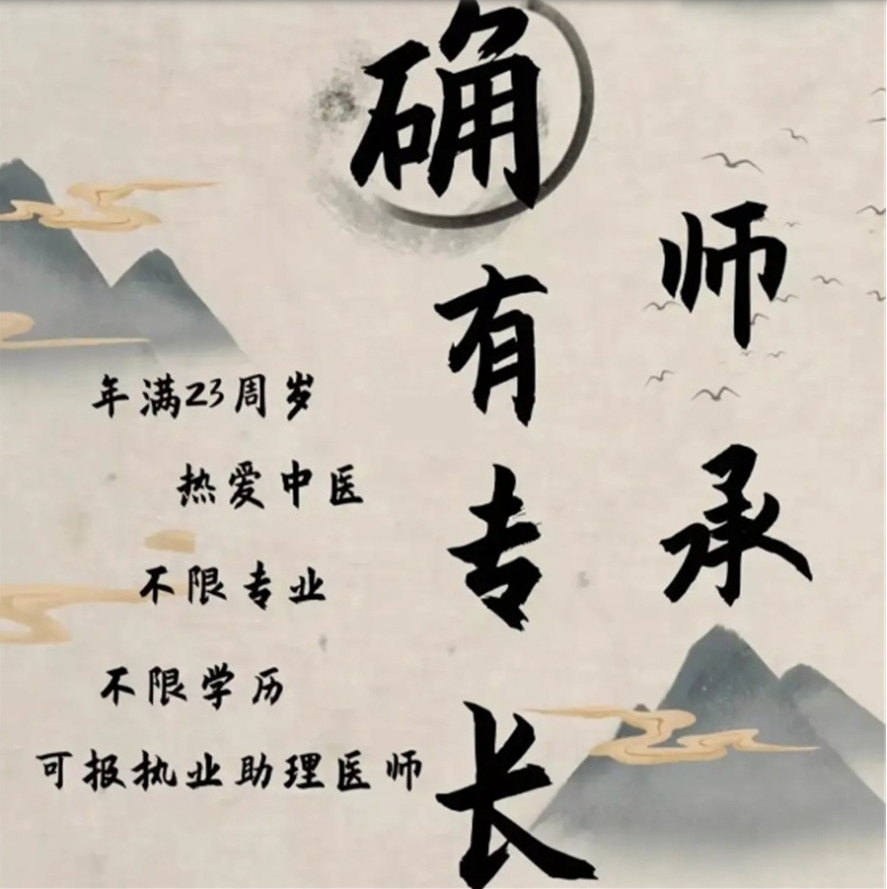 师承
确有专长
年满23周岁
热爱中医
不限专业
不限学历
可报执业助理医师